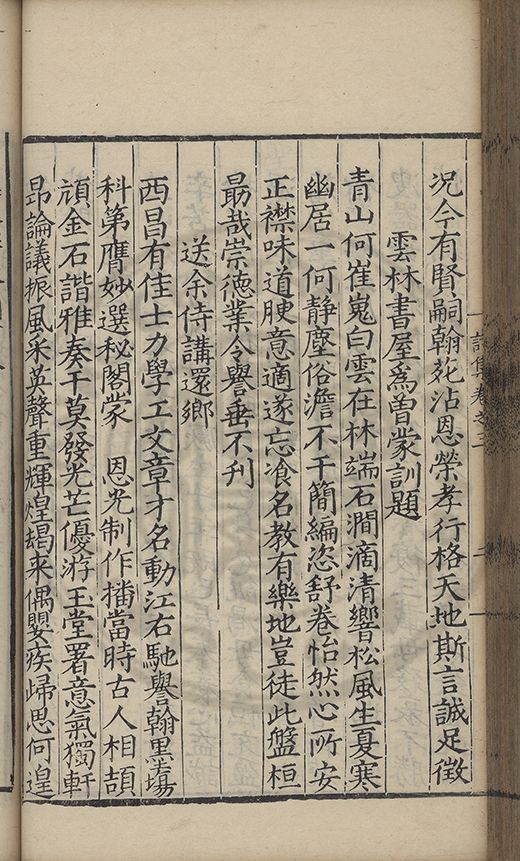 況今有賢嗣翰苑沾恩榮孝行格天地斯言誠足徵
雲林書屋爲曽蒙訓題
青山何崔嵬白雲在林端石澗滴清響松風生夏寒
幽居一何靜塵俗澹不干簡編恣舒卷怡然心所安
正襟味道腴意適遂忘飡名教有樂地豈徒此盤桓
勗哉崇徳業令譽垂不刋
送余侍講還鄉
西昌有佳士力學工文章才名動江右馳譽翰墨塲
科第膺妙選秘閣蒙　恩光制作播當時古人相頡
頏金石諧雅奏干莫發光芒優游玉堂署意氣獨軒
昻論議振風采英聲重輝煌朅来偶嬰疾歸思何遑
詩集卷之三